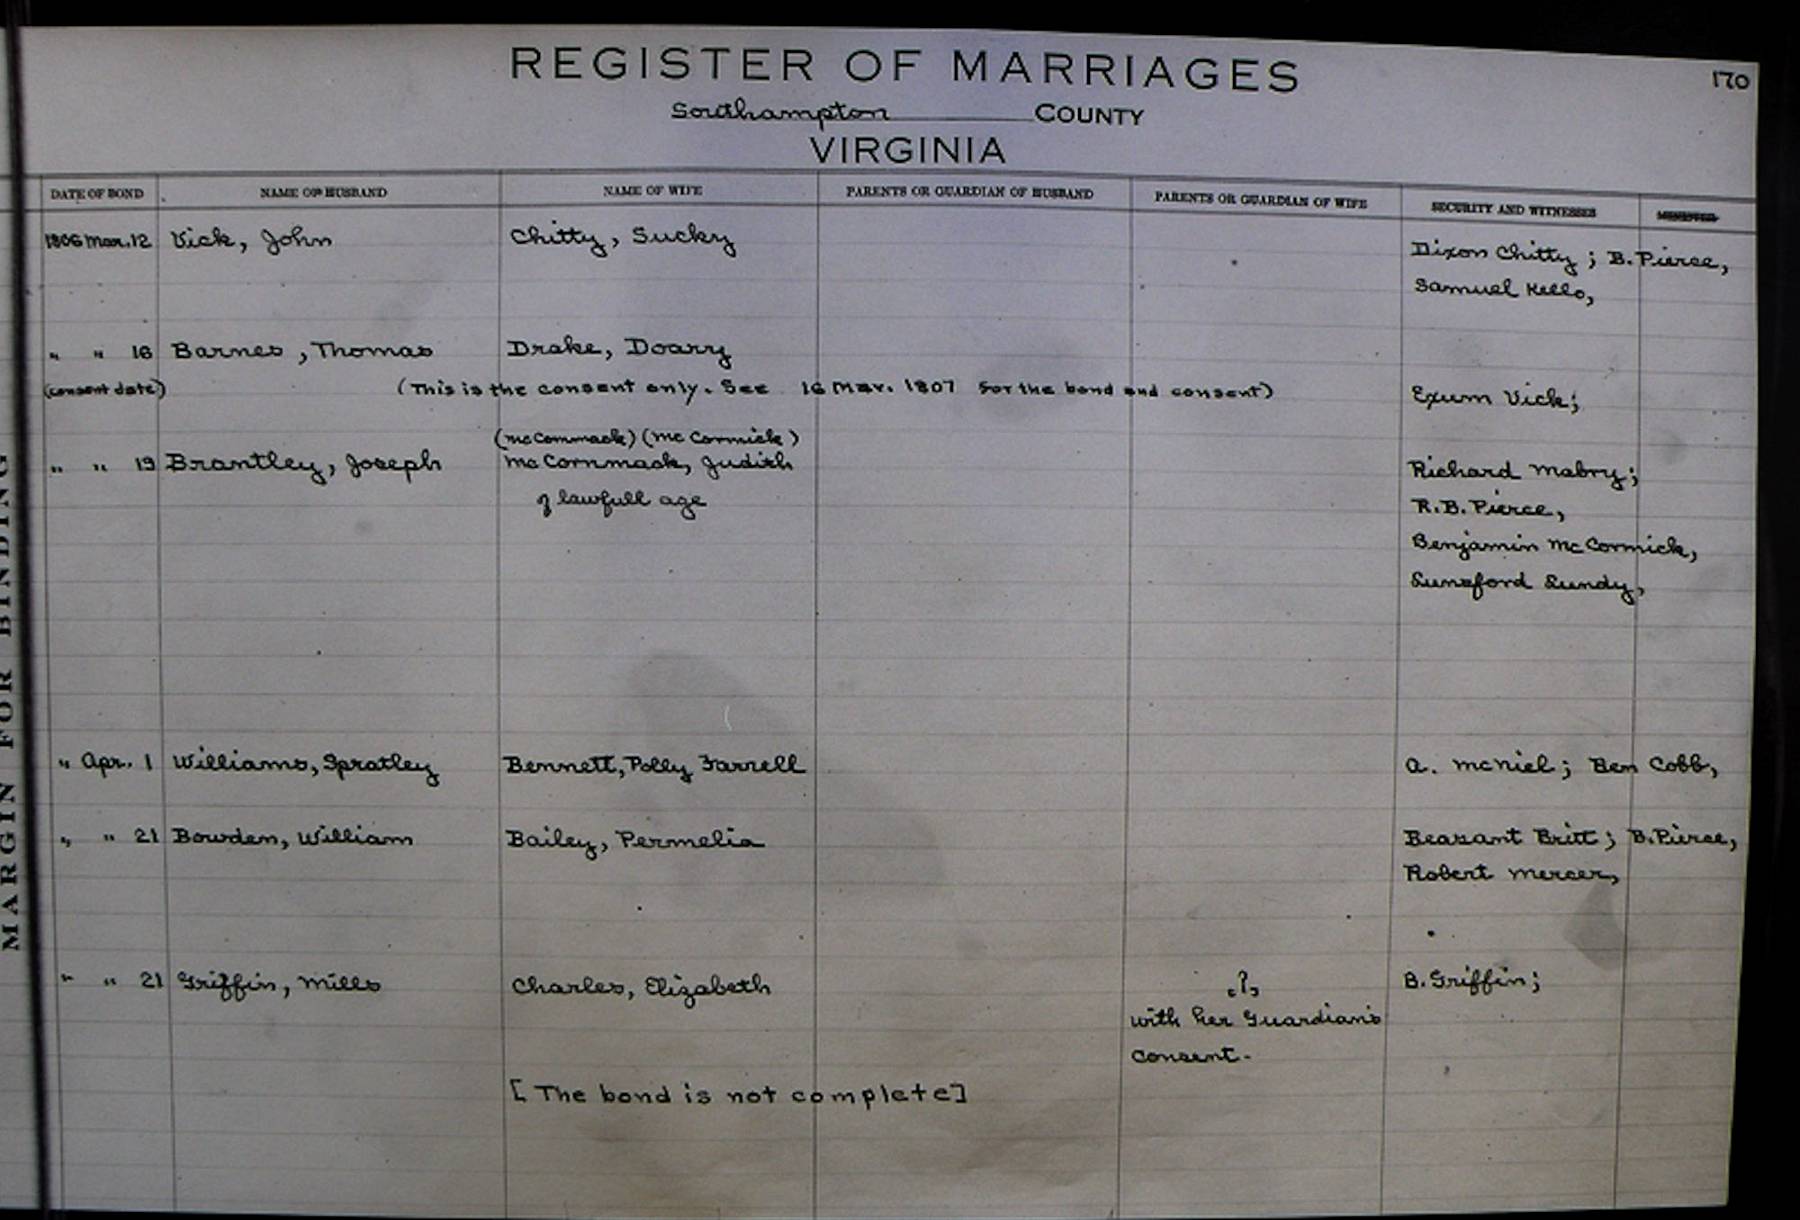 REGISTER OF MARRIAGES 170
Southampton COUNTY
VIRGINIA
DATE OF BOND NAME OF HUSBAND NAME OF WIFE PARENTS OR GUARDIAN OF HUSBAND PARENTS OR GUARDIAN OF WIFE SECURITY AND WITNESSES MINISTER
1806 Mar. 12 Vick, John Chitty, Sucky Dixon Chitty; B. Pierce,
Samuel Kello,
" " 16 Barnes, Thomas Drake, Doary
(consent date) (This is the consent only. See 16 Mar. 1807 for the bond and consent) Exum Vick;
(McCommack) (McCormick)
" " 19 Brantley, Joseph McCornmack, Judith Richard Mabry;
of lawfull age R.B. Pierce,
Benjamin McCormick,
Lunsford Lundy,
" Apr. 1 Williams, Spratley Bennett, Polly Farrell A. McNiel; Ben Cobb,
" " 21 Bowden, William Bailey, Permelia Beasant Britt; B. Pierce,
Robert Mercer,
" " 21 Griffin, Mills Charles, Elizabeth ? B. Griffin;
with her Guardian's
consent-
[The bond is not complete]
MARGIN FOR BINDING